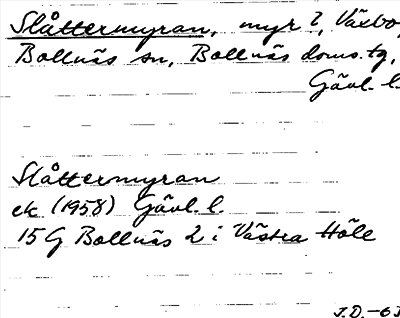 Slåttermyran, myr ?, Växbo,
Bollnäs sn, Bollnäs doms.tg,
Gävl. l.
Slåttermyran
ek (1958) Gävl. l.
15 G Bollnäs 2 i Västra Höle
J.D.-63